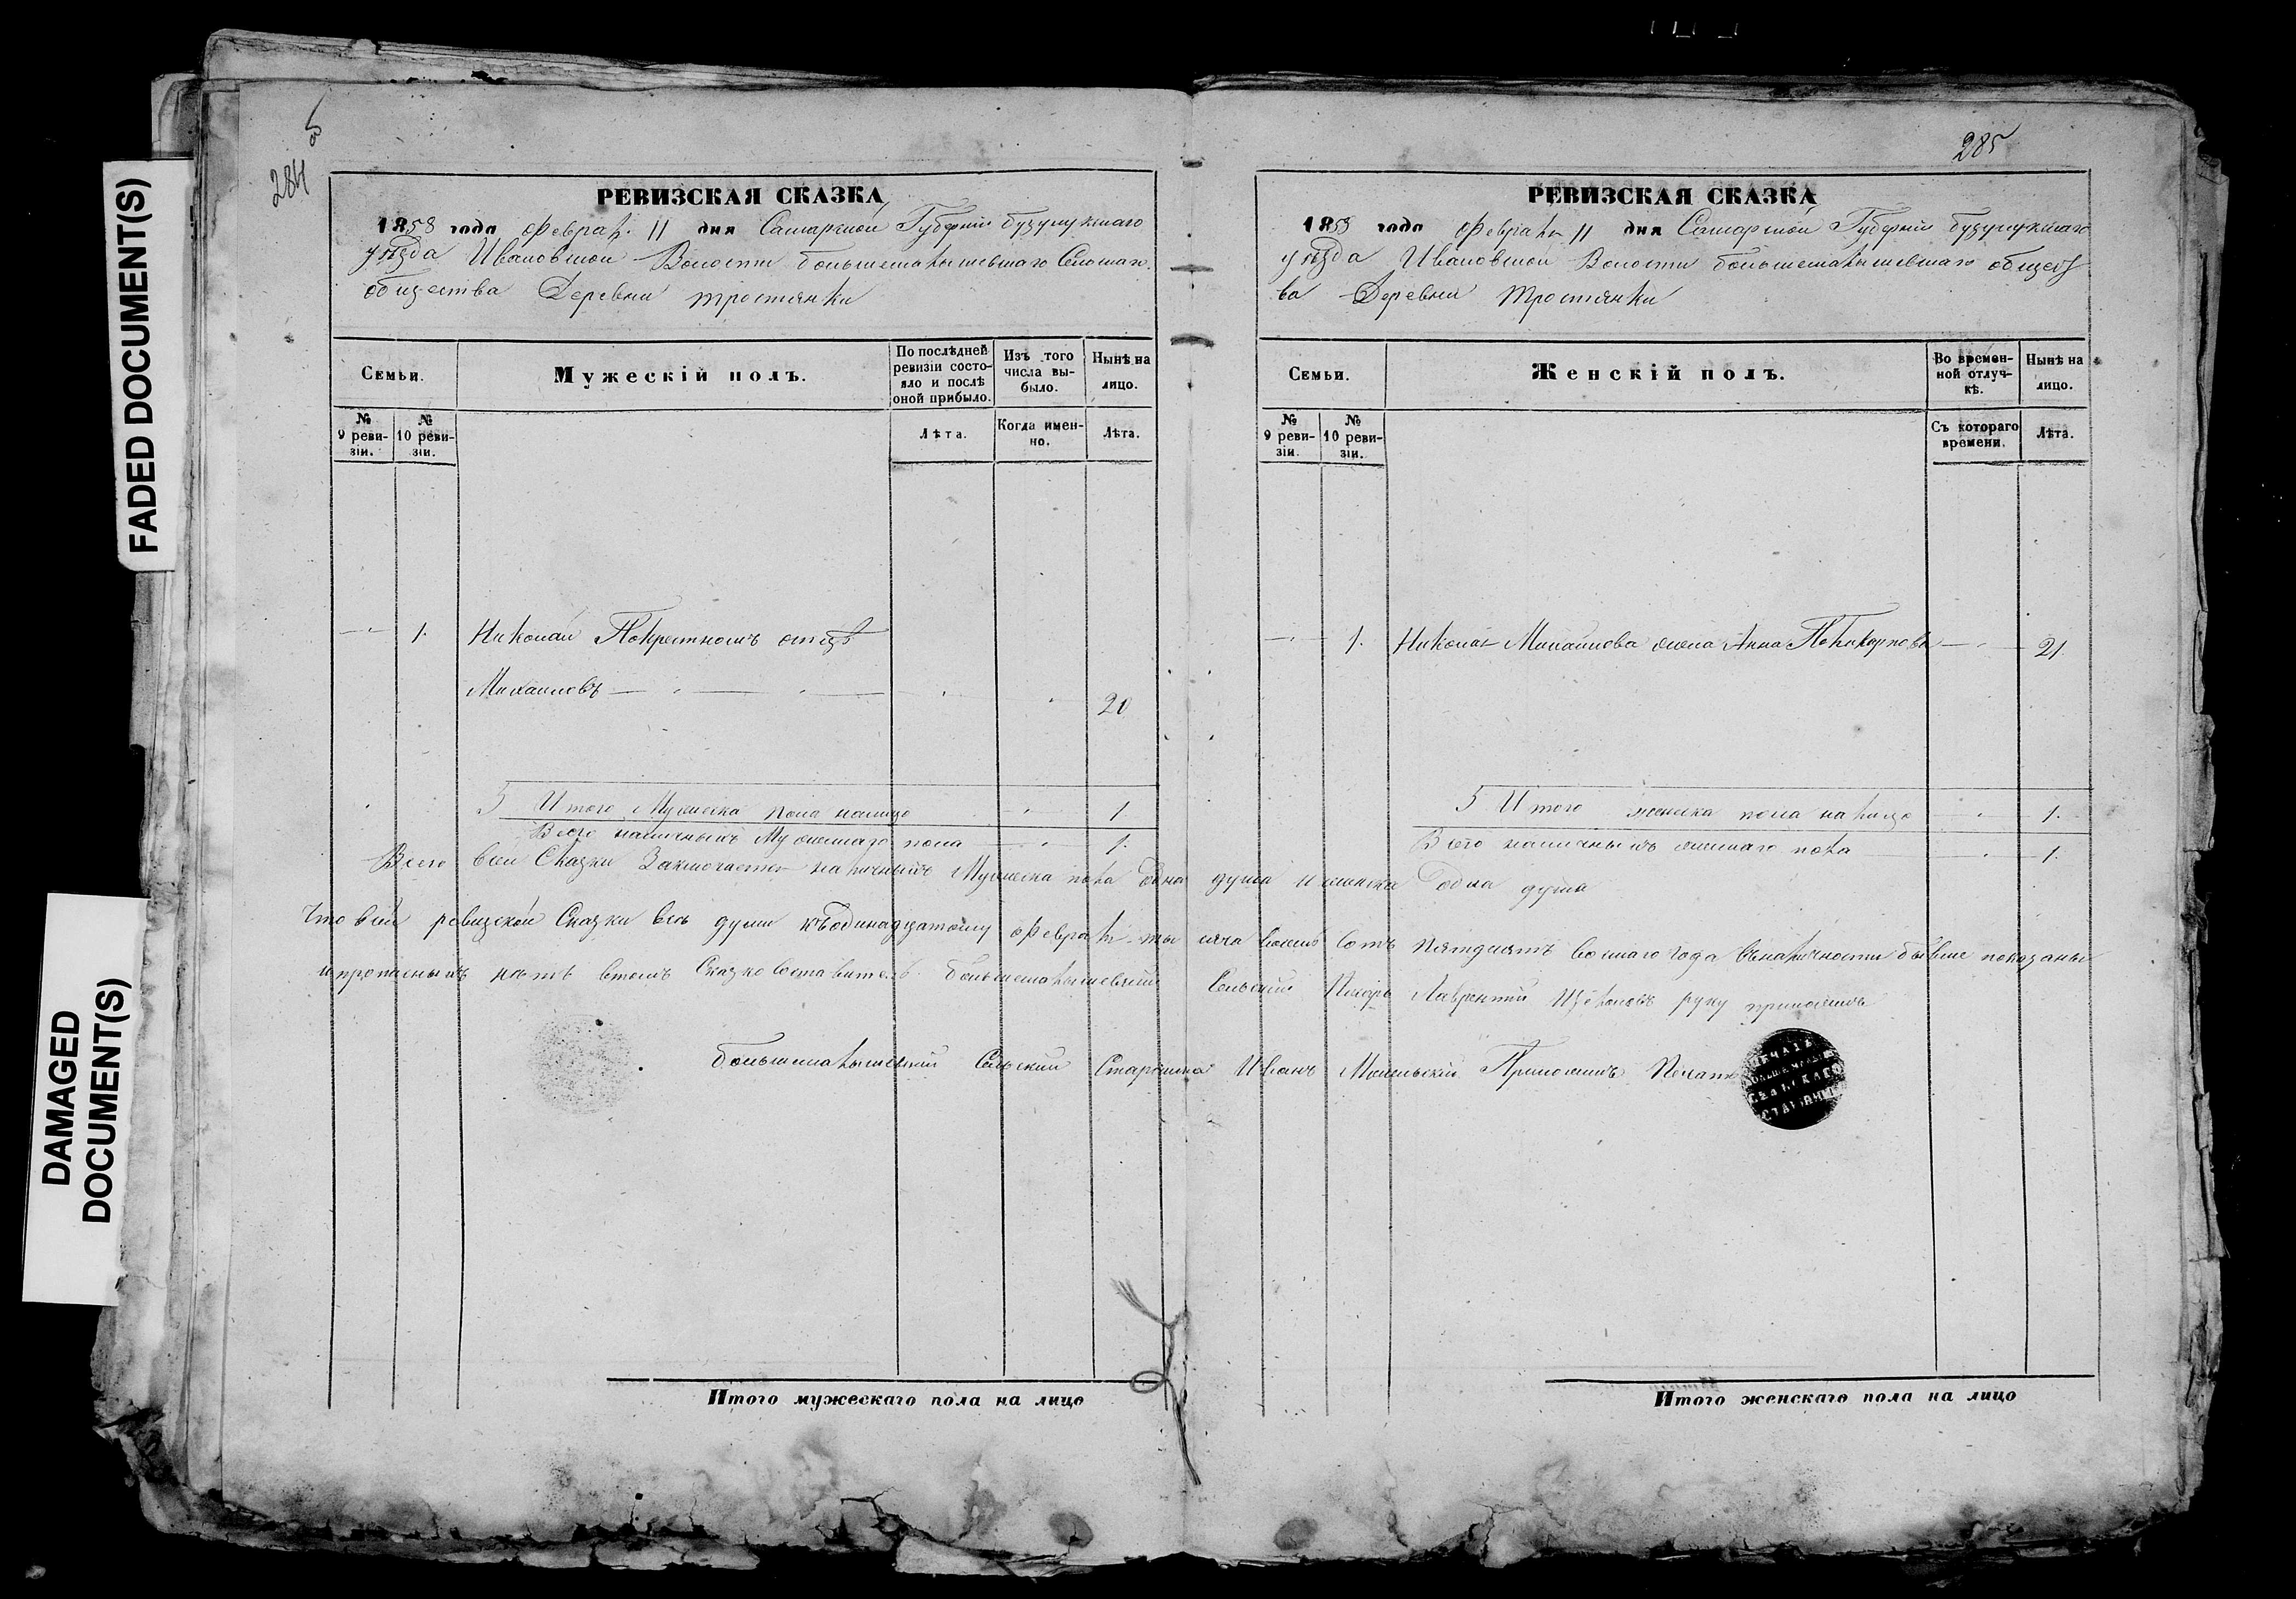 FADED DOCUMENT(S)
DAMAGED
DOCUMENT(S)
284
РЕВИЗСКАЯ СКАЗКА
1858 года Феврал. 11 дня Самарской Губернии бузулукскаго
уѣзда Ивановской Волости большемалышевскаго Сельскаго
общества Деревни тростянки
Семьи.
Мужескій полъ.
По послѣдней ревизіи состояло и послѣ оной прибыло.
Изъ того числа выбыло.
Нынѣ на лицо.
№ 9 ревизіи.
№ 10 ревизіи.
Лѣта.
Когда именно.
Лѣта.
1. Николай Покрестномъ отцѣ
Михаиловъ 20
Итого Мужеска пола налицо 1
Всего наличныхъ Мужескаго пола 1.
285
РЕВИЗСКАЯ СКАЗКА
1858 года Февраля 11 дня Самарской Губернии бузулукскаго
уѣзда Ивановской Волости большемалышевскаго общест
ва Деревни тростянки
Семьи.
Женскій полъ.
Во временной отлучкѣ.
Нынѣ на лицо.
№ 9 ревизіи.
№ 10 ревизіи.
Съ котораго времени.
Лѣта.
1. Николая Михаилова жена Анна 21
Итого женска пола налицо 1.
Всего наличныхъ женскаго пола 1.
Всего всей Сказки Заключается наличныхъ Мужеска пола одна душа и женска одна душа
Что всей ревизской Сказки все души къодинадцатому Феврал. тысяча восемь сотъ пятдесятъ восмаго года вналичности бывше показаны
ипрописныхъ нѣтъ втомъ Большемалышевский Сельский Писарь Лаврентий руку приложилъ
большемалышевский Сельский Старшина Иванъ Приложилъ Печать
Итого мужескаго пола на лицо
Итого женскаго пола на лицо